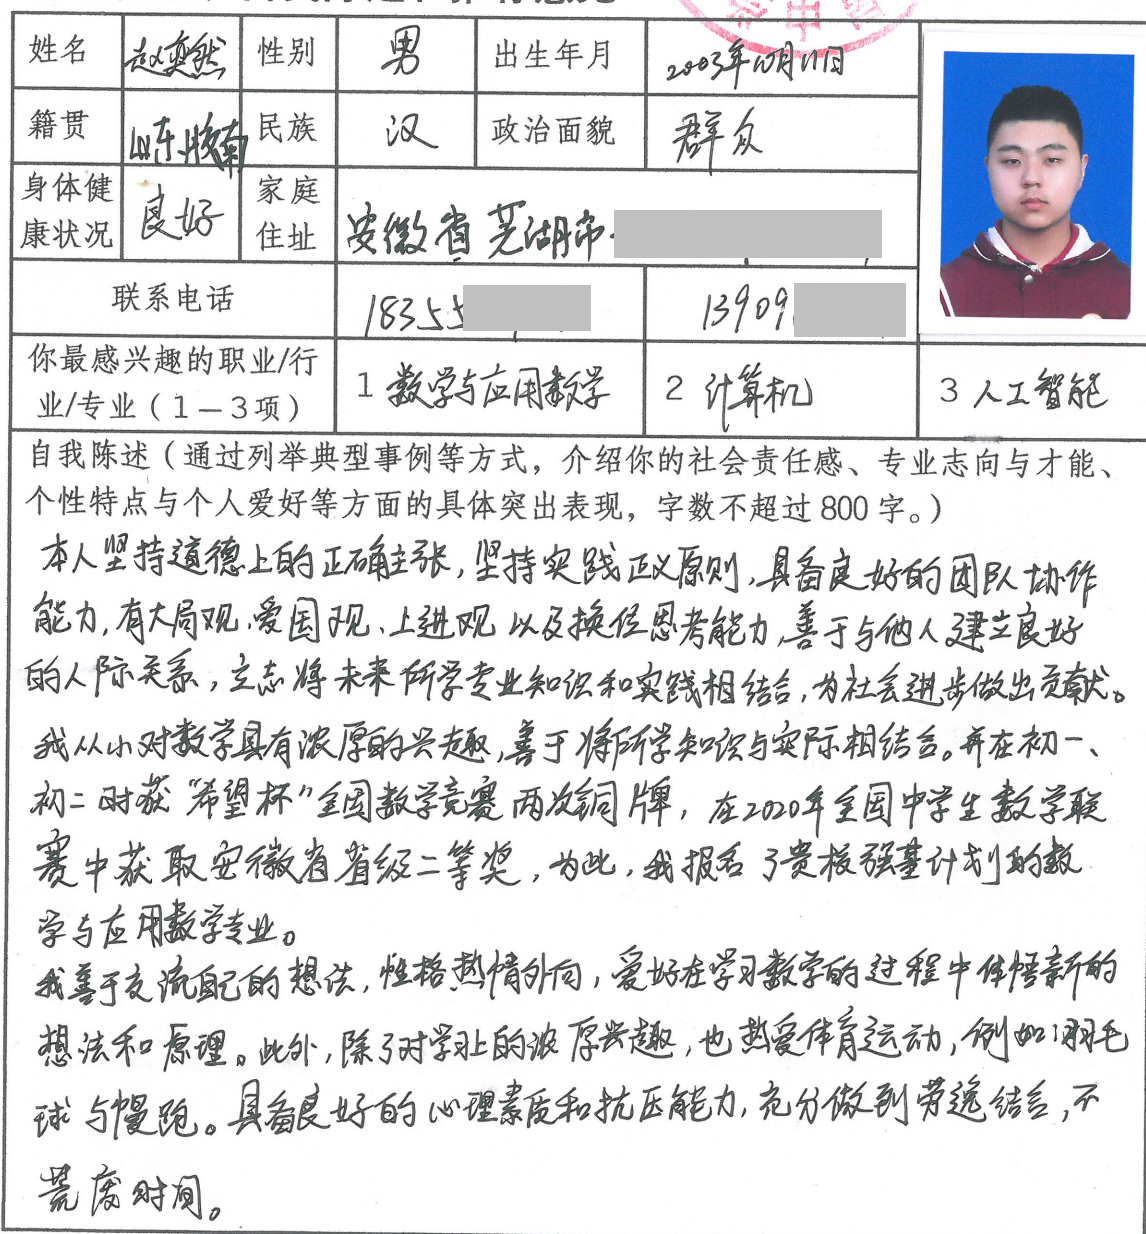 姓名 赵奕然 性别 男 出生年月 2003年10月11日
籍贯 山东胶南 民族 汉 政治面貌 群众
身体健康状况 良好 家庭住址 安徽省芜湖市
联系电话 18355 13909
你最感兴趣的职业/行
业/专业（1－3项） 1 数学与应用数学 2 计算机 3 人工智能
自我陈述（通过列举典型事例等方式，介绍你的社会责任感、专业志向与才能、
个性特点与个人爱好等方面的具体突出表现，字数不超过800字。）
本人坚持道德上的正确主张，坚持实践正义原则，具备良好的团队协作
能力，有大局观、爱国观、上进观以及换位思考能力，善于与他人建立良好
的人际关系，立志将未来所学专业知识和实践相结合，为社会进步做出贡献。
我从小对数学具有浓厚的兴趣，善于将所学知识与实际相结合。并在初一、
初二时获“希望杯”全国数学竞赛两次铜牌，在2020年全国中学生数学联
赛中获取安徽省省级二等奖，为此，我报名了贵校强基计划的数
学与应用数学专业。
我善于交流自己的想法，性格热情外向，爱好在学习数学的过程中体悟新的
想法和原理。此外，除了对学习上的浓厚兴趣，也热爱体育运动，例如羽毛
球与慢跑。具备良好的心理素质和抗压能力，充分做到劳逸结合，不
荒废时间。